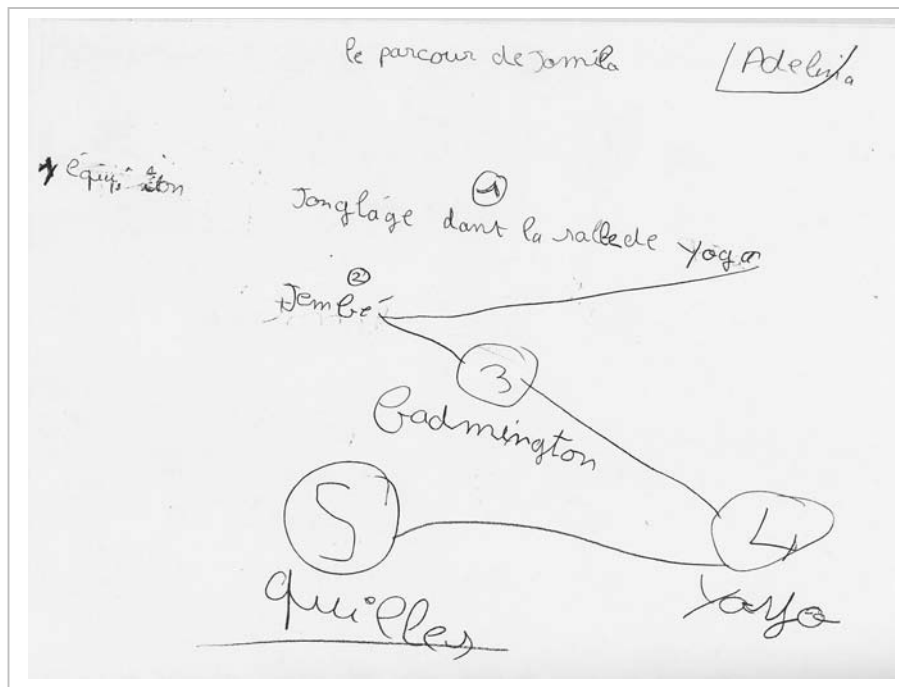 le parcour de Jamila
Adelina
①
Jonglage dant la salle de yoga
②
Jembé
3
badmington
5
4
quilles
yoyo